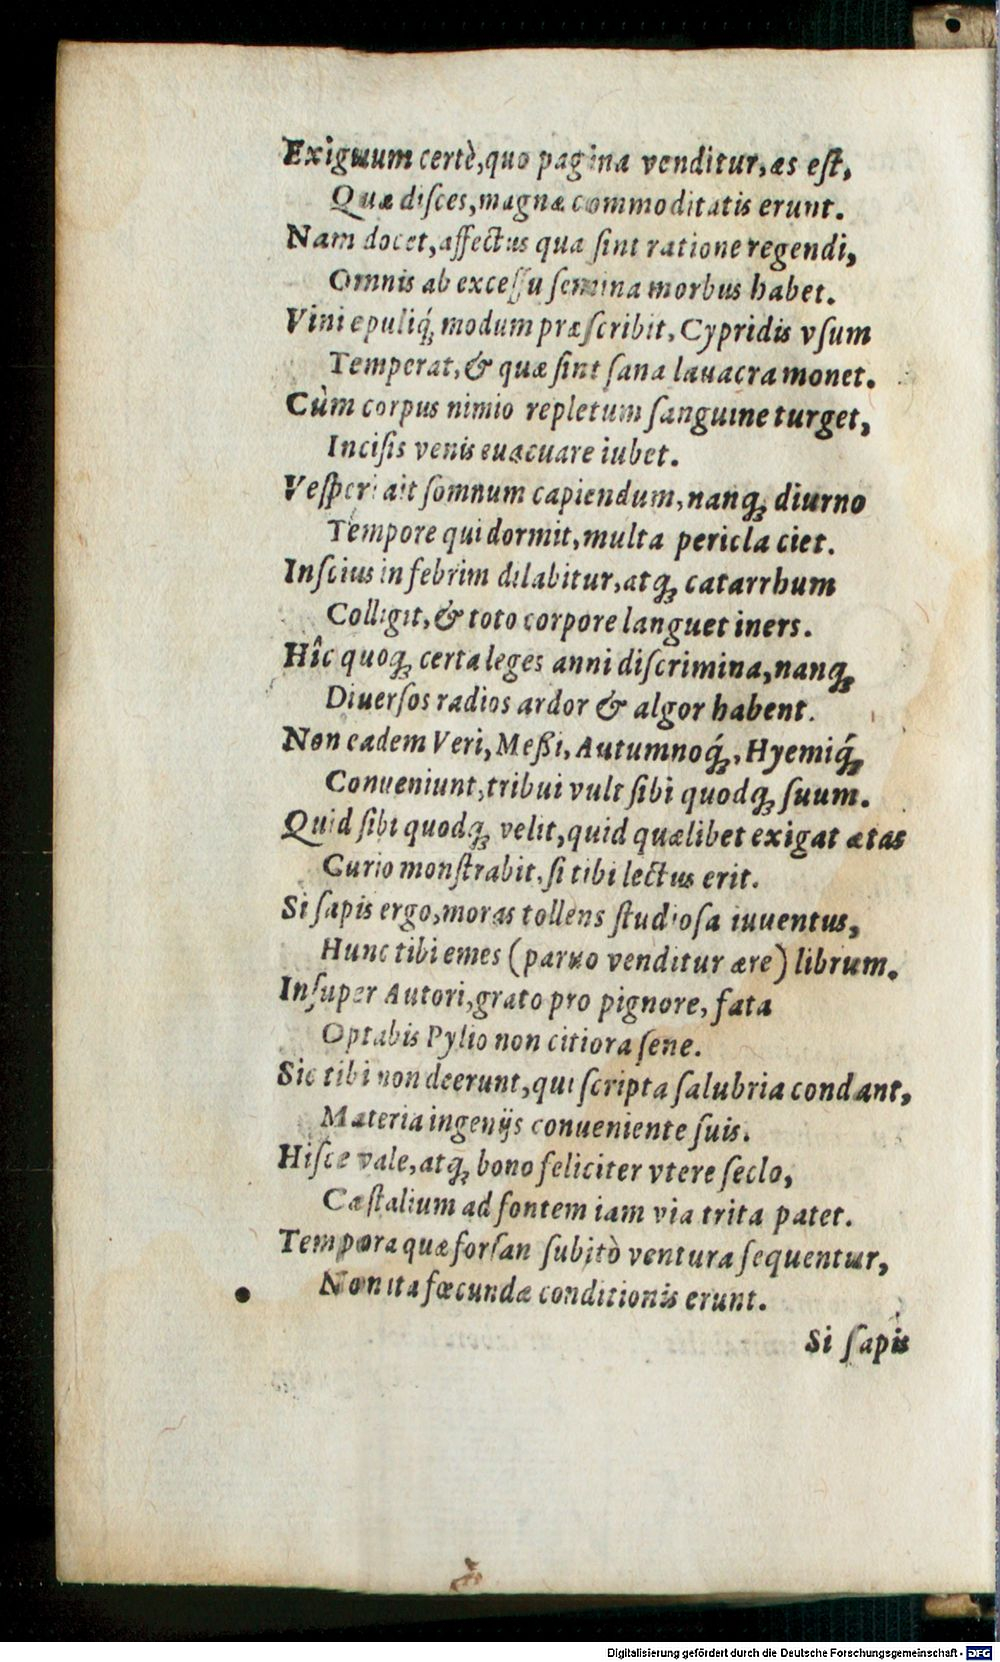 Exiguum certè, quo pagina venditur, æs eſt,
Quæ diſces, magnæ commoditatis erunt.
Nam docet, affectus qua ſint ratione regendi,
Omnis ab exceſſu ſemina morbus habet.
Vini epuliq́ꝫ modum præſcribit, Cypridis vſum
Temperat, & quæ ſint ſana lauacra monet.
Cùm corpus nimio repletum ſanguine turget,
Inciſis venis euacuare iubet.
Veſperi ait ſomnum capiendum, nanqꝫ diurno
Tempore qui dormit, multa pericla ciet.
Inſcius in febrim dilabitur, atqꝫ catarrhum
Colligit, & toto corpore languet iners.
Hîc quoqꝫ certa leges anni diſcrimina, nanqꝫ
Diuerſos radios ardor & algor habent.
Non eadem Veri, Meßi, Autumnoq́ꝫ, Hyemiq́ꝫ
Conueniunt, tribui vult ſibi quodqꝫ ſuum.
Quid ſibi quodqꝫ velit, quid quælibet exigat ætas
Curio monſtrabit, ſi tibi lectus erit.
Si ſapis ergo, moras tollens ſtudioſa iuuentus,
Hunc tibi emes (paruo venditur ære) librum.
Inſuper Autori, grato pro pignore, fata
Optabis Pylio non citiora ſene.
Sic tibi non deerunt, qui ſcripta ſalubria condant,
Materia ingenijs conueniente ſuis.
Hiſce vale, atqꝫ bono feliciter vtere ſeclo,
Caſtalium ad fontem iam via trita patet.
Tempora quæ forſan ſubitò ventura ſequentur,
Non ita fœcundæ conditionis erunt.
Si ſapis
Digitalisierung gefördert durch die Deutsche Forschungsgemeinschaft - DFG